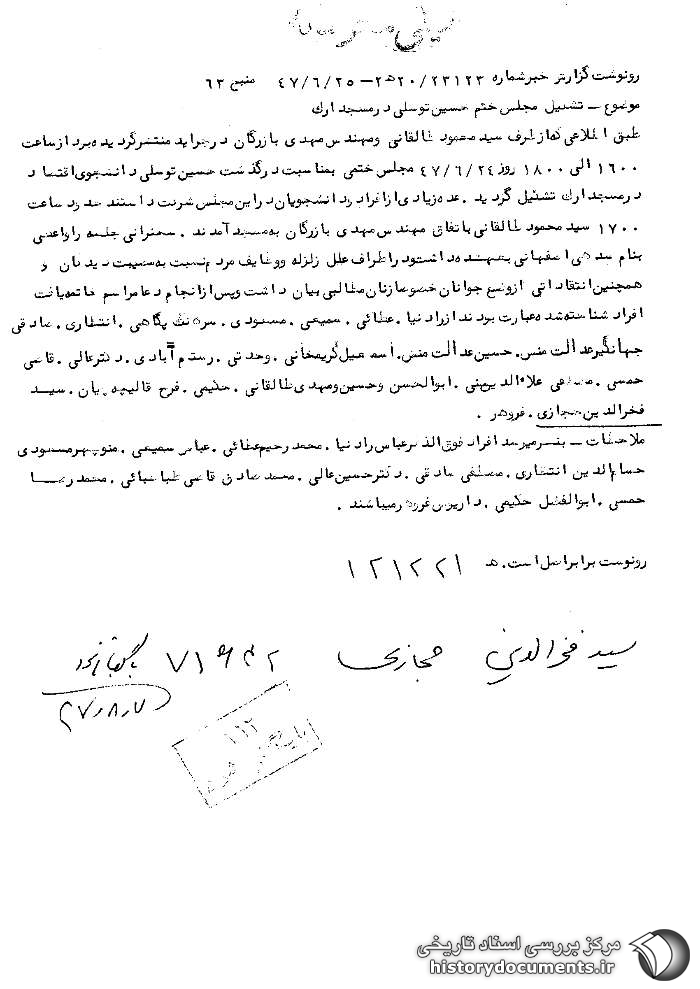 خیلی محرمانه
رونوشت گزارش خبر شماره ۲۳۱۲۳/۲۰ﻫ۲ – ۴۷/۶/۲۵ منبع ۶۳
موضوع – تشکیل مجلس ختم حسین توسلی در مسجد ارک
طبق اطلاعی که از طرف سید محمود طالقانی و مهندس مهدی بازرگان در جراید منتشر گردیده بود از ساعت
۱۶۰۰ الی ۱۸۰۰ روز ۴۷/۶/۲۴ مجلس ختمی بمناسبت درگذشت حسین توسلی دانشجوی اقتصاد
در مسجد ارک تشکیل گردید . عده زیادی از افراد و دانشجویان در این مجلس شرکت داشتند حدود ساعت
۱۷۰۰ سید محمود طالقانی باتفاق مهندس مهدی بازرگان به مسجد آمدند . سخنرانی جلسه را واعظی
بنام اصفهانی بعهده داشت و در اطراف علل زلزله و وظایف مردم نسبت به مصیبت دیدگان و
همچنین انتقاداتی از وضع جوانان خصوصا زنان مطالبی بیان داشت و پس از انجام دعا مراسم خاتمه یافت
افراد شناخته شده عبارت بودند از راد نیا . عطائی . سمیعی . مسعودی . سرهنگ پگاهی . انتظاری . صادقی
جهانگیر عدالت منش . حسین عدالت منش . اسمعیل کریمخانی . وحدتی . رستم آبادی . دکتر عالی . قاضی
حمسی . مصطفی علاءالدین . ابوالحسن و حسین و مهدی طالقانی . حکیمی . فرخ قالیچه چیان . سید
فخرالدین حجازی . فروهر .
ملاحظات – بنظر میرسد افراد فوق الذکر عباس راد نیا . محمد رحیم عطائی . عباس سمیعی . منوچهر مسعودی
حسام الدین انتظاری . مصطفی صادقی . دکتر حسین عالی . محمد صادق قاضی طباطبائی . محمد رضا
حمسی . ابوالفضل حکیمی . داریوش فروهر میباشند .
رونوشت برابر اصل است . ﻫ ۱۲۱۲۲۱
سید فخرالدین حجازی ۷۱۹۳۲
۴۷/۸/۷
۱۲۲
مرکز بررسی اسناد تاریخی
historydocuments.ir